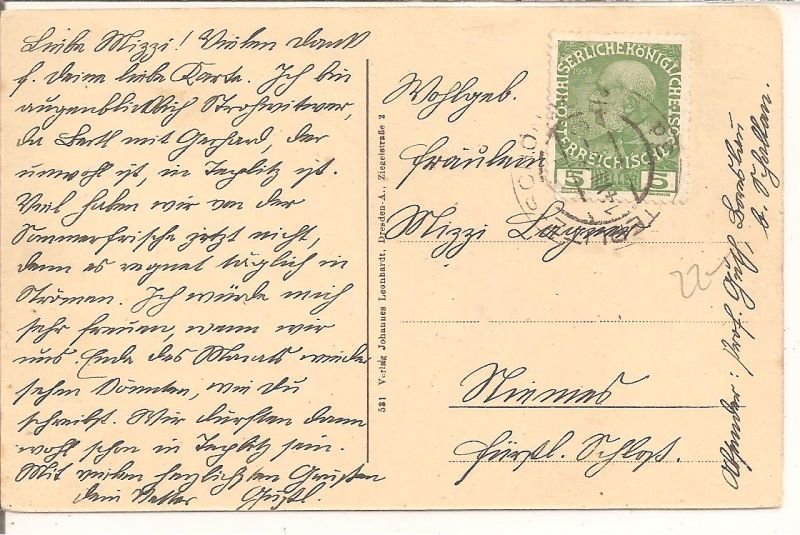 Liebe Mizzi! Vielen Dank
f. Deine liebe Karte. Ich bin
augenblicklich Strohwitwer,
da Bertl mit Gerhard, der
unwohl ist, in Teplitz ist.
Viel haben wir von der
Sommerfrische jetzt nicht,
denn es regnet täglich in
Strömen. Ich würde mich
sehr freuen, wenn wir
uns Ende des Monats wieder
sehen könnten, wie Du
schreibst. Wir dürften dann
wohl schon in Teplitz sein.
Mit vielen herzlichsten Grüßen
dein Vetter Gustl.
531 Verlag Johannes Leonhardt, Dresden-A., Ziegelstraße 2
Wohlgeb.
Fräulein
Mizzi
Niemes
Fürstl. Schloß.
KAISERLICHEKÖNIGLICHE
ÖSTERREICHISCHE
1908
5 5
22
Absender: Prof.